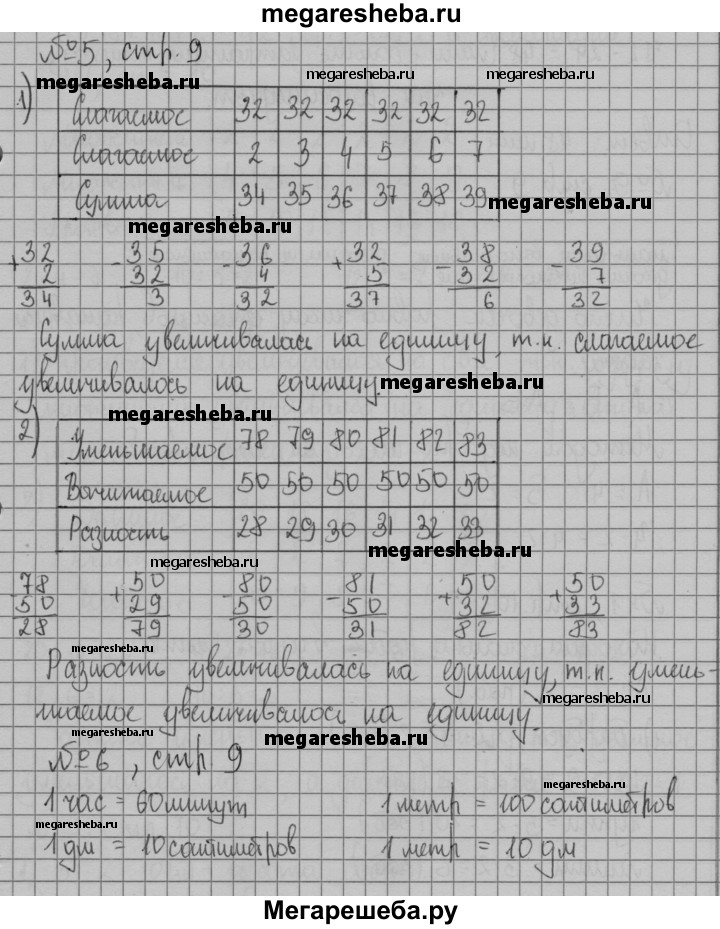 megaresheba.ru
№5, стр. 9
megaresheba.ru megaresheba.ru megaresheba.ru
1)
Слагаемое 32 32 32 32 32 32
Слагаемое 2 3 4 5 6 7
Сумма 34 35 36 37 38 39 megaresheba.ru
megaresheba.ru
+32 -35 -36 +32 -38 -39
2 32 4 5 32 7
34 3 32 37 6 32
Сумма увеличивалась на единицу, т.к. слагаемое
увеличивалось на единицу. megaresheba.ru
megaresheba.ru
2)
Уменьшаемое 78 79 80 81 82 83
Вычитаемое 50 50 50 50 50 50
Разность 28 29 30 31 32 33
megaresheba.ru
megaresheba.ru
-78 +50 -80 -81 +50 +50
50 29 50 50 32 33
28 79 30 31 82 83
megaresheba.ru
Разность увеличивалась на единицу, т.к. умень-
megaresheba.ru
шаемое увеличивалось на единицу.
megaresheba.ru megaresheba.ru
№6, стр. 9
megaresheba.ru
1 час = 60 минут 1 метр = 100 сантиметров
megaresheba.ru
1 дм = 10 сантиметров 1 метр = 10 дм
Мегарешеба.ру